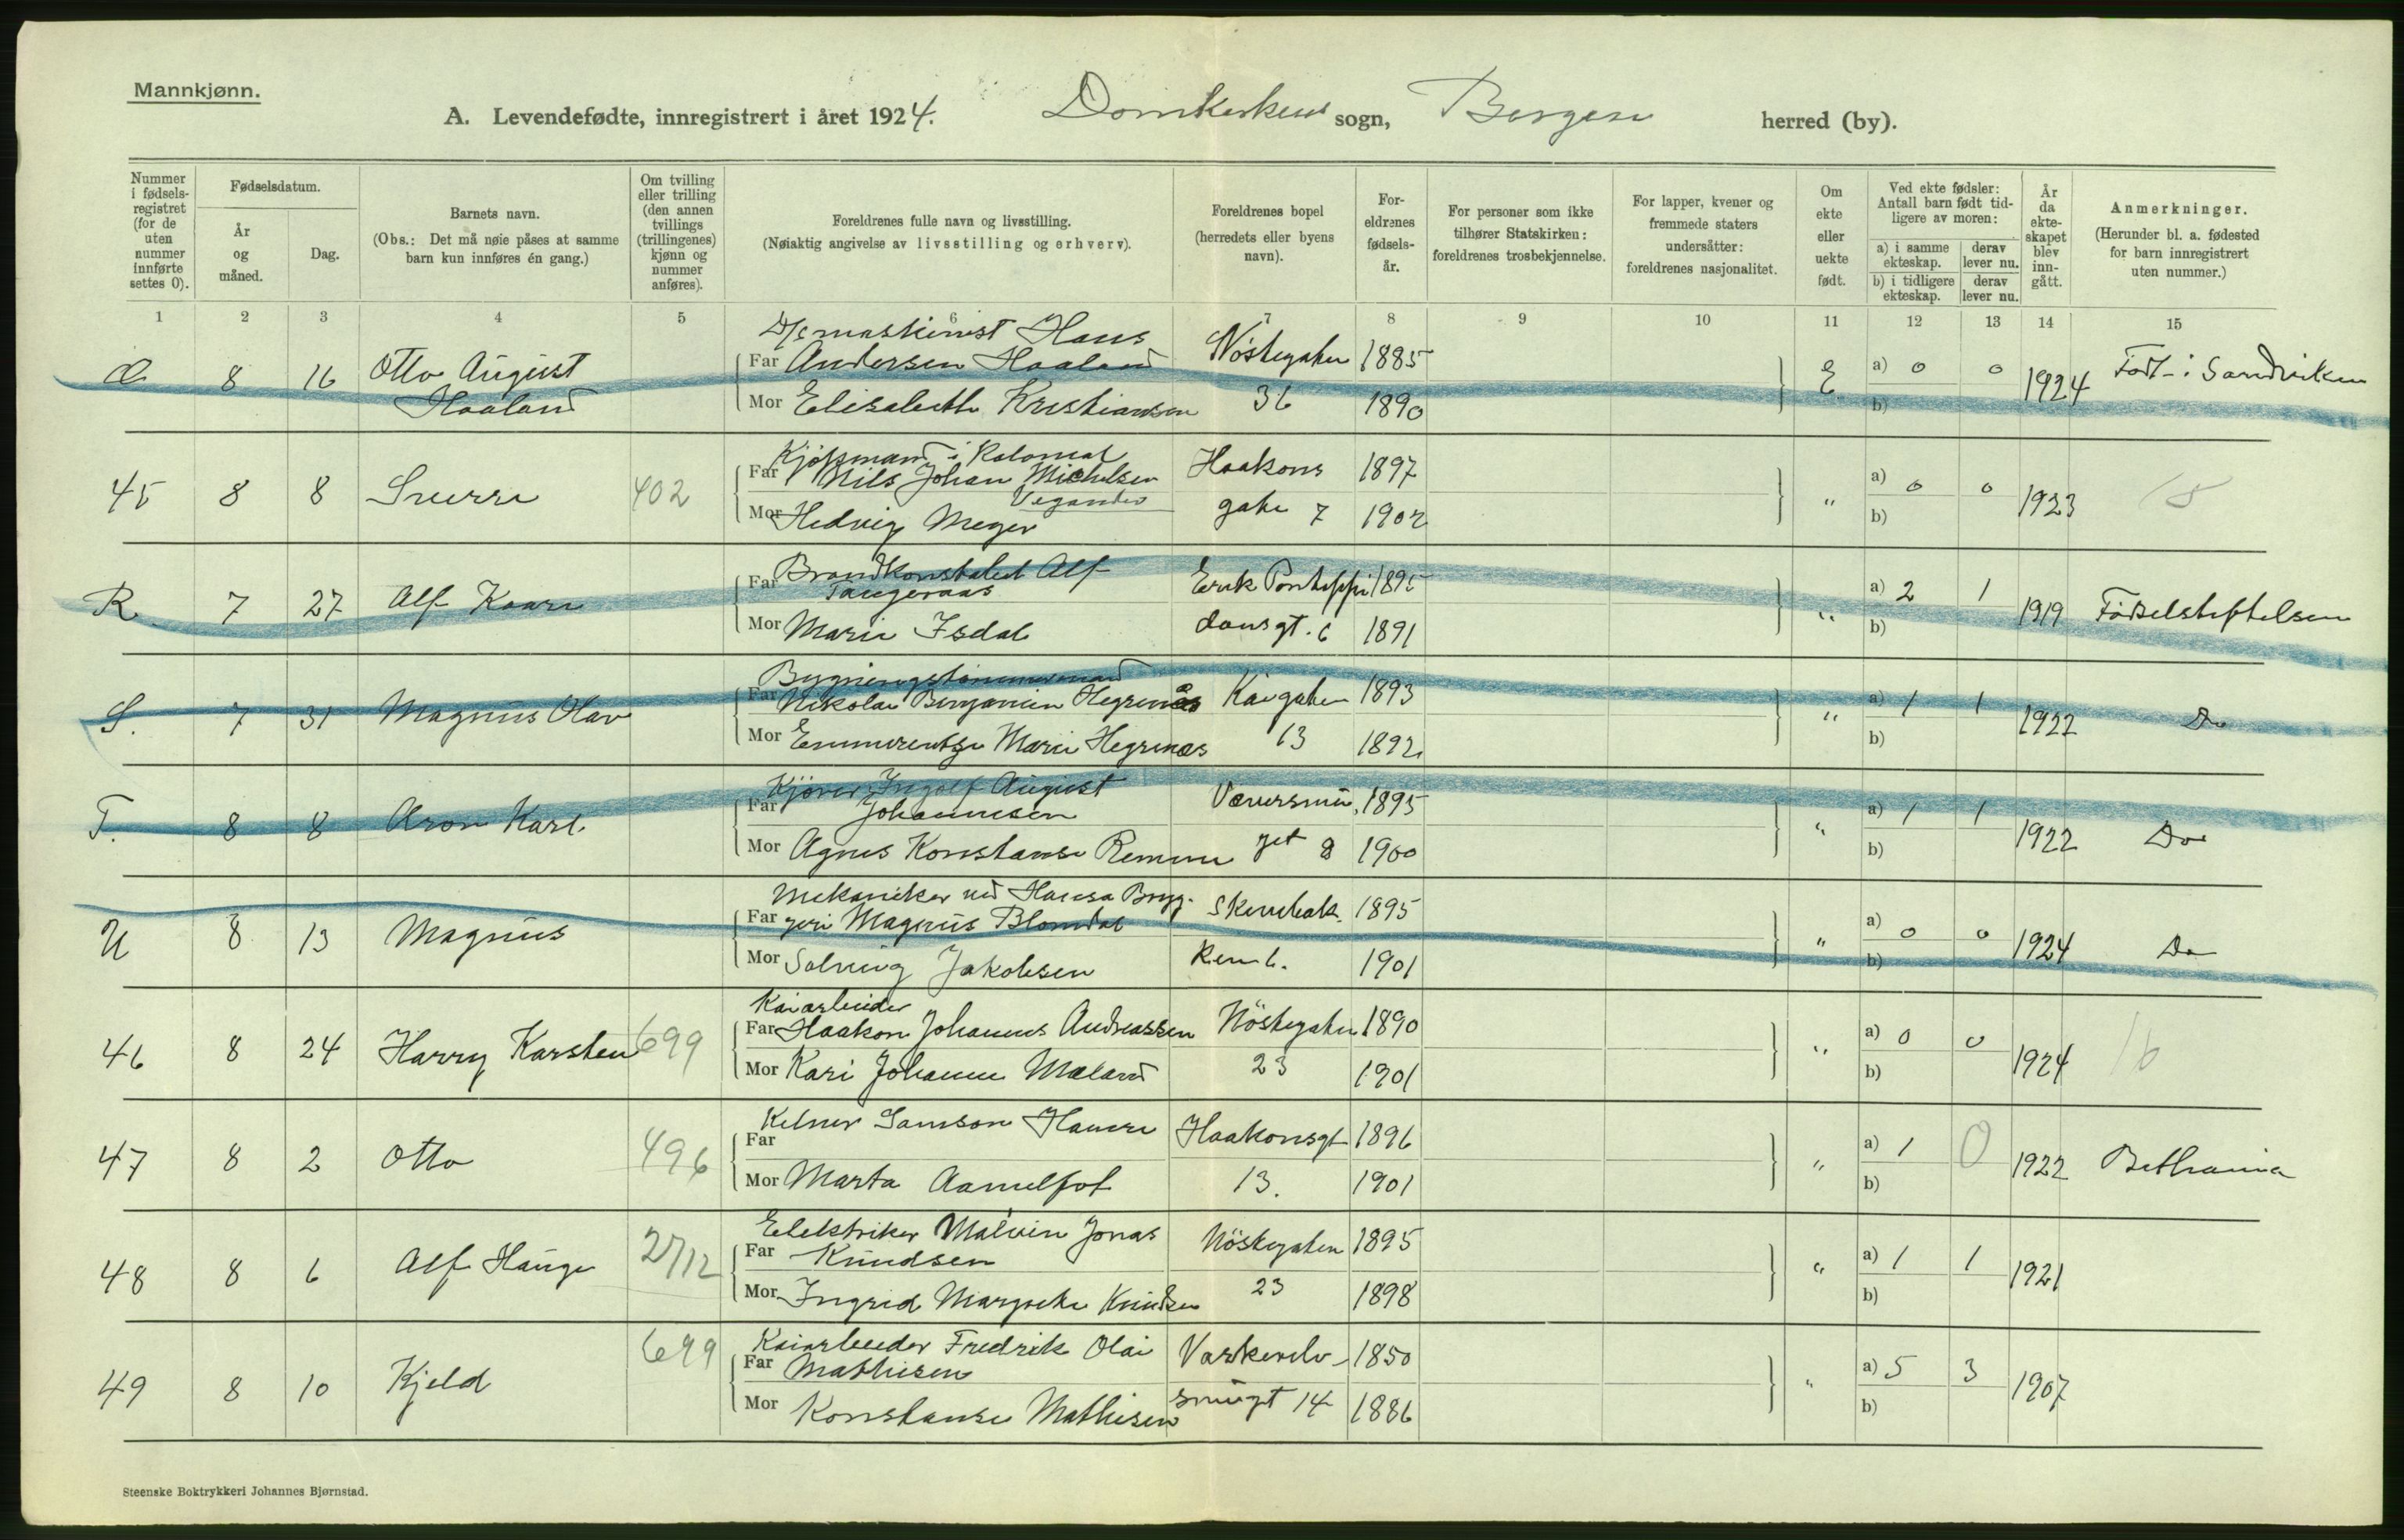 Mannkjønn.
A. Levendefødte, innregistrert i året 1924. Domkirkens sogn, Bergen herred (by).
Nummer i fødsels-registret (for de uten nummer innførte settes 0).
Fødselsdatum.
År og måned.
Dag.
Barnets navn.
(Obs.: Det må nøie påses at samme barn kun innføres én gang.)
Om tvilling eller trilling (den annen tvillings (trillingenes) kjønn og nummer anføres).
Foreldrenes fulle navn og livsstilling.
(Nøiaktig angivelse av livsstilling og erhverv).
Foreldrenes bopel (herredets eller byens navn).
For-eldrenes fødsels-år.
For personer som ikke tilhører Statskirken: foreldrenes trosbekjennelse.
For lapper, kvener og fremmede staters undersåtter: foreldrenes nasjonalitet.
Om ekte eller uekte født.
Ved ekte fødsler: Antall barn født tid-ligere av moren:
a) i samme ekteskap.
derav lever nu.
b) i tidligere ekteskap.
derav lever nu.
År da ekte-skapet blev inn-gått.
Anmerkninger.
(Herunder bl. a. fødested for barn innregistrert uten nummer.)
1 2 3 4 5 6 7 8 9 10 11 12 13 14 15
D/s maskinist Hans
8 16 Otto August Far Andersen Haaland Nöstegaten 1885 E a) 0 0 1924 Födt i Sandviken
Haaland Mor Elisabeth Kristiansen 36 1890 b)
Kjøpmand i Kolonial
45 8 8 Sverre 402 Far Nils Johan Michelsen Haakons 1897 " a) 0 0 1923 15
Mor Hedvig Meyer gate 7 1902 b)
Brandkonstabel Alf
R 7 27 Alf Kaare Far Tangeraas Erik Pontoppi 1895 " a) 2 1 1919 Födselstiftelsen
Mor Marie Isdal dansgt. 6 1891 b)
Bygningstömmermand
S. 7 31 Magnus Olav Far Nikolai Benjamin Hegrenæs Kaigaten 1893 " a) 1 1 1922 Do
Mor Emmerentse Marie Hegrenæs 13 1892 b)
Kjörer Ingolf August
T. 8 8 Aron Karl Far Johannesen 1895 " a) 1 1 1922 Do
Mor Agnes Konstanse 8 1900 b)
Mekaniker ved Hansa Bryg-
U 8 13 Magnus Far geri Magnus Blomdal 1895 " a) 0 0 1924 Do
Mor Solveig Jakobsen 1901 b)
Kaiarbeider
46 8 24 Harry Karsten 699 Far Haakon Johannes Andreassen Nöstegaten 1890 " a) 0 0 1924 16
Mor Kari Johanne Mæland 23 1901 b)
Kelner Samson Hamre
47 8 2 Otto 496 Far Haakonsgt 1896 " a) 1 0 1922 Bethania
Mor Marta 13. 1901 b)
Elektriker Malvin Jonas
48 8 6 Alf Hauge 27/12 Far Knudsen Nöstegaten 1895 " a) 1 1 1921
Mor Ingrid Margrethe Knudsen 23 1898 b)
Kaiarbeider Fredrik Olai
49 8 10 Kjeld 699 Far Mathisen 1850 " a) 5 3 1907
Mor Konstanse Mathisen smuget 14 1886 b)
Steenske Boktrykkeri Johannes Bjørnstad.